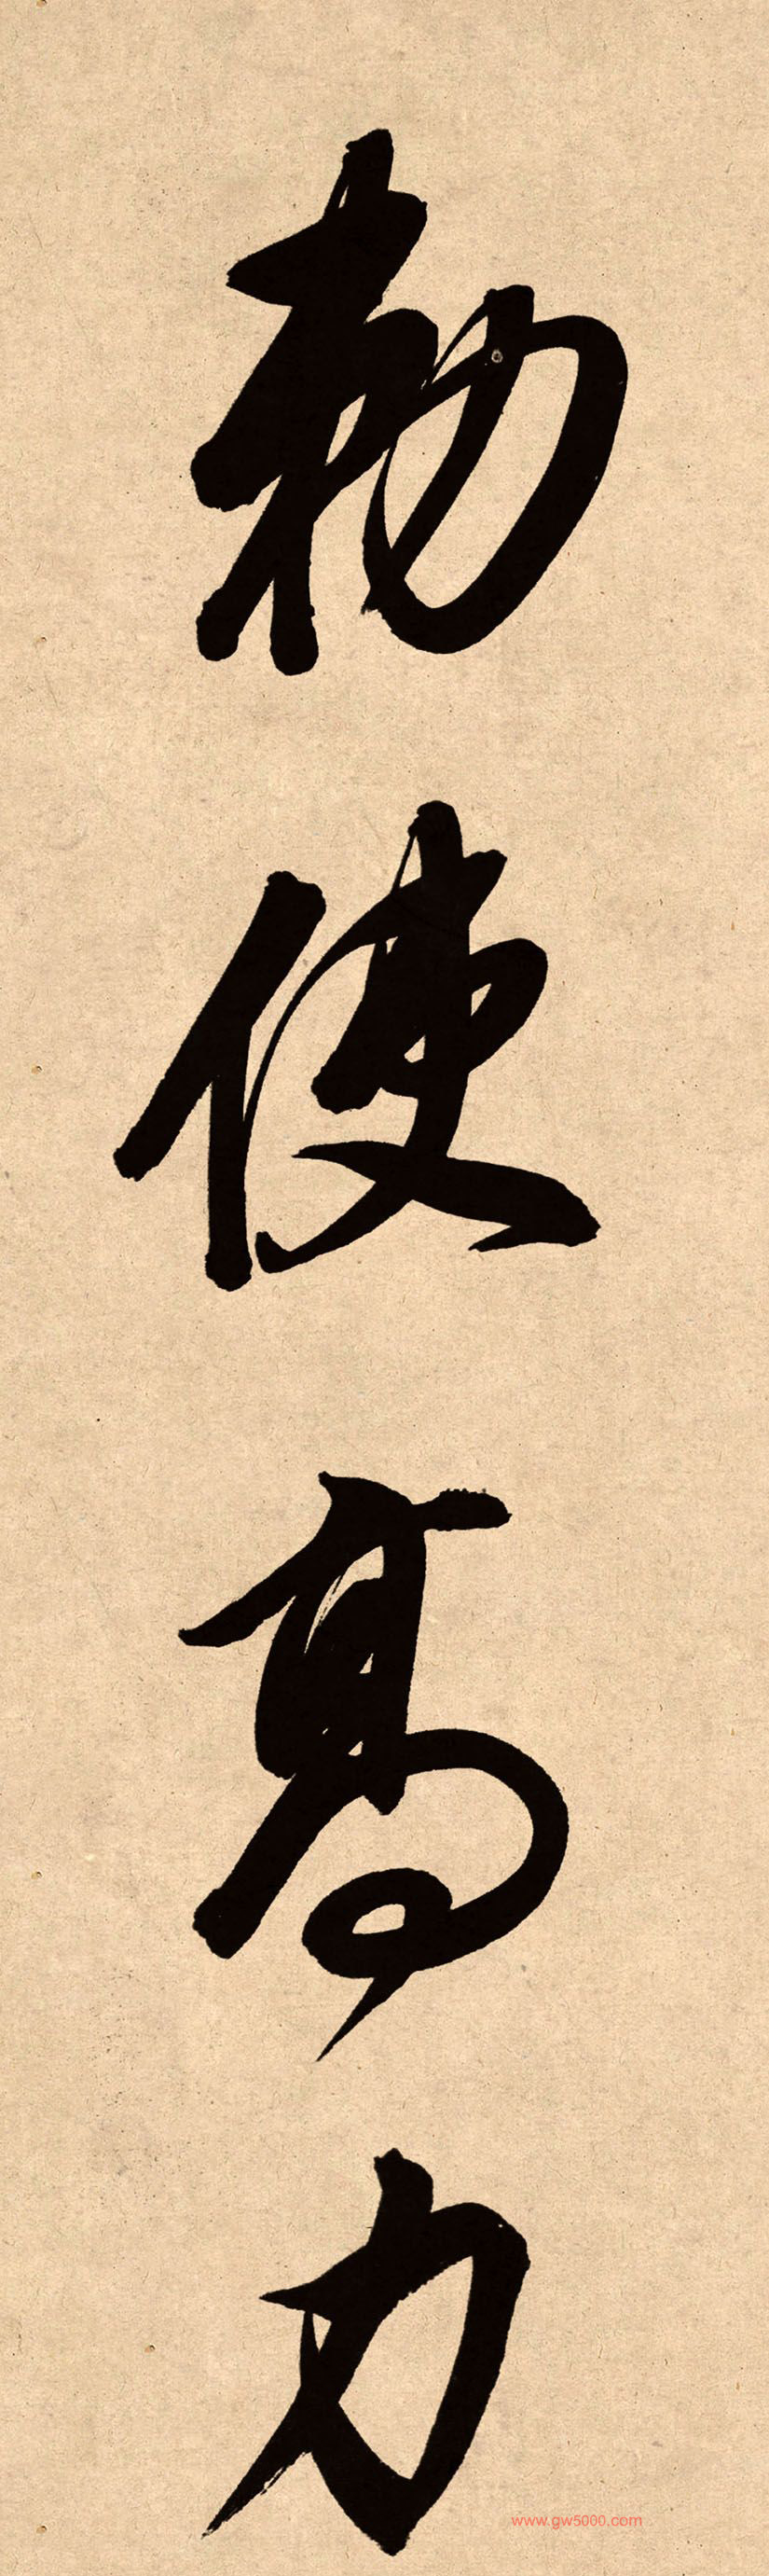 勅使高力
www.gw5000.com